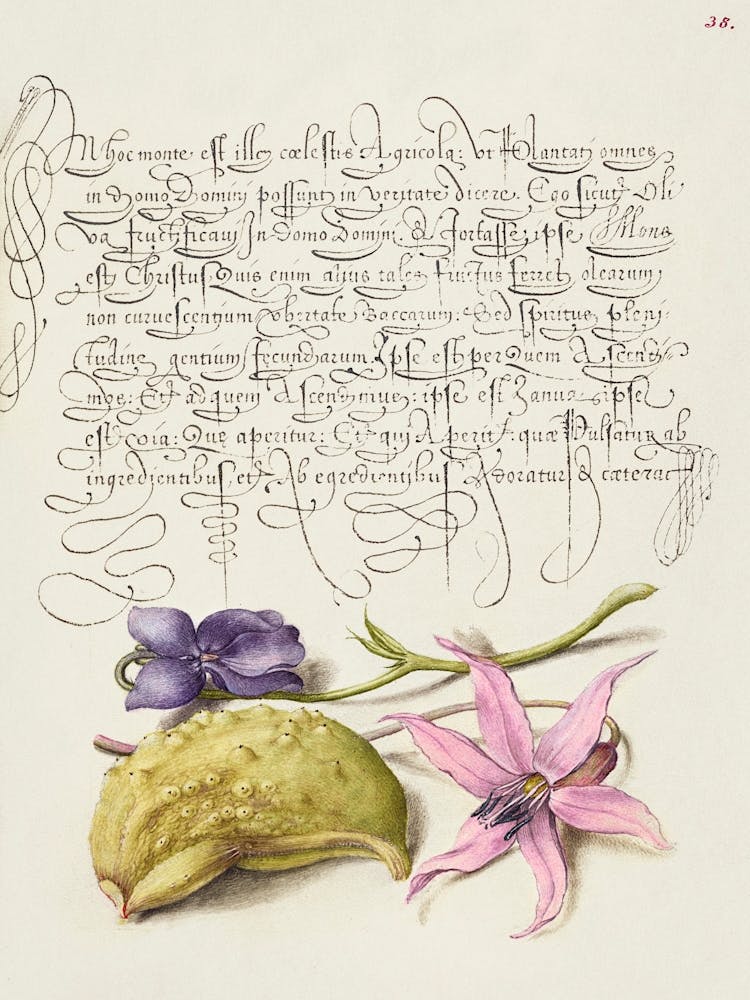 38.
In hoc monte est ille cœlestis Agricola: Vt Plantati omnes
in domo Domini possunt in veritate dicere. Ego sicut Oli
va fructificaui In Domo Domini. & Fortasse ipse Mons
est Christus Quis enim alius tales fructus ferret olearum
non curuescentium vbertate Baccarum: Sed spiritus pleni:
tudine gentium fecundarum. Ipse est per Quem Ascendi=
mus: Et ad quem Ascendimus: ipse est Ianua: ipse
est: Que aperitur: Et qui Aperit: quæ Pulsatur ab
ingredientibus, et Ab egredientibus Adoratur & cætera